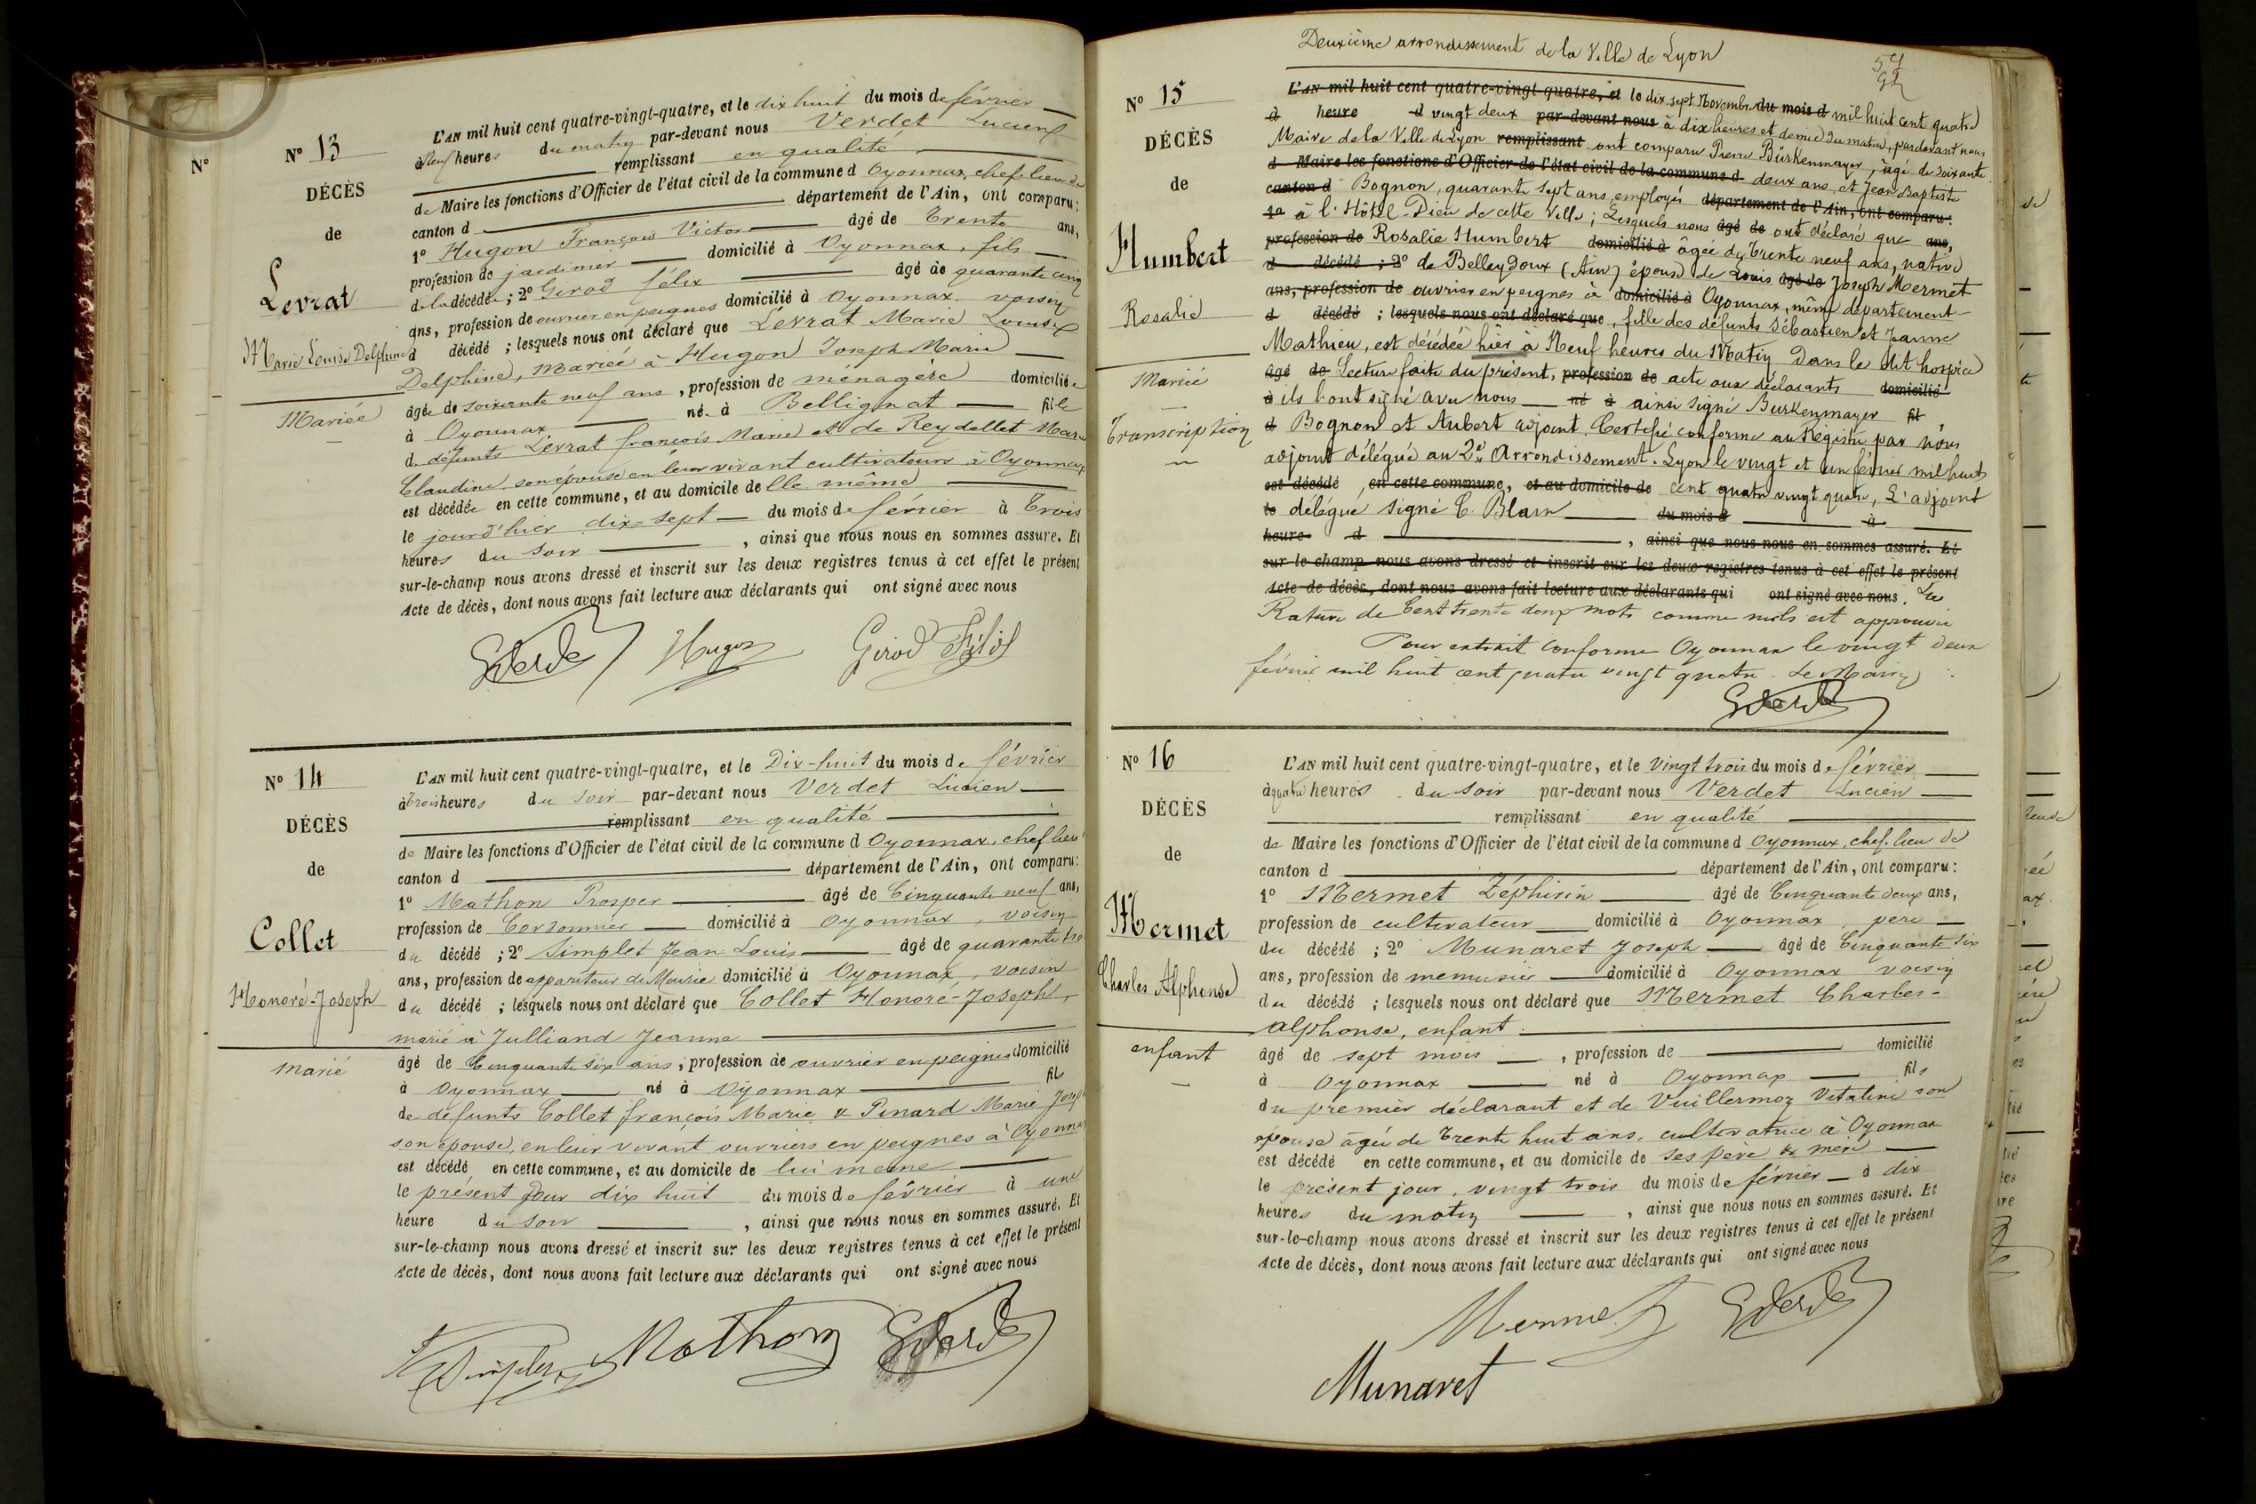 N°
N° 13
DÉCÈS
de
Levrat
Marie Louise Delphine
Mariée
L'AN mil huit cent quatre-vingt-quatre, et le dix huit du mois de février
à Neuf heures du matin par-devant nous Verdet Lucien
remplissant en qualité
de Maire les fonctions d'Officier de l'état civil de la commune d Oyonnax, chef-lieu de
canton d département de l'Ain, ont comparu:
1° Hugon François Victor âgé de Trente ans,
profession de jardinier domicilié à Oyonnax, fils
de la décédée ; 2° Girod félix âgé de quarante cinq
ans, profession de ouvrier en peignes domicilié à Oyonnax voisin
d décédé ; lesquels nous ont déclaré que Levrat Marie Louise
Delphine, mariée à Hugon Joseph Marie
âgée de soixante neuf ans, profession de ménagère domiciliée
à Oyonnax née à Bellignat fille
de défunts Levrat françois Marie et de Reydellet Marie
Claudine son épouse en leur vivant cultivateurs à Oyonnax
est décédée en cette commune, et au domicile de elle même
le jourd'hier dix-sept du mois de février à Trois
heures du soir , ainsi que nous nous en sommes assuré. Et
sur-le-champ nous avons dressé et inscrit sur les deux registres tenus à cet effet le présent
Acte de décès, dont nous avons fait lecture aux déclarants qui ont signé avec nous
Hugon Girod Félix
N° 14
DÉCÈS
de
Collet
Honoré-Joseph
marié
L'AN mil huit cent quatre-vingt-quatre, et le Dix-huit du mois de février
à Trois heures du soir par-devant nous Verdet Lucien
remplissant en qualité
de Maire les fonctions d'Officier de l'état civil de la commune d Oyonnax, chef lieu
canton d département de l'Ain, ont comparu:
1° Mathon Prosper âgé de Cinquante neuf ans,
profession de Cordonnier domicilié à Oyonnax, voisin
du décédé ; 2° Simplet Jean Louis âgé de quarante tro
ans, profession de appariteur de Mairie domicilié à Oyonnax, voisin
du décédé ; lesquels nous ont déclaré que Collet Honoré-Joseph,
marié à Julliand Jeanne
âgé de Cinquante six ans, profession de ouvrier en peignes domicilié
à Oyonnax né à Oyonnax fils
de défunts Collet françois Marie & Pinard Marie Josep
son épouse, en leur vivant ouvriers en peignes à Oyonna
est décédé en cette commune, et au domicile de lui même
le présent jour dix huit du mois de février à une
heure du soir , ainsi que nous nous en sommes assuré. Et
sur-le-champ nous avons dressé et inscrit sur les deux registres tenus à cet effet le présent
Acte de décès, dont nous avons fait lecture aux déclarants qui ont signé avec nous
Simplet Mathon
Deuxième arrondissement de la Ville de Lyon
N° 15
DÉCÈS
de
Humbert
Rosalie
Mariée
Transcription
L'AN mil huit cent quatre-vingt-quatre, et le dix sept Novembre du mois d mil huit cent quatre
à heure d vingt deux par-devant nous à dix heures et demie du matin, par devant nous
Maire de la Ville de Lyon remplissant ont comparu Pierre Bürkenmayer, âgé de soixante
d Maire les fonctions d'Officier de l'état civil de la commune d deux ans et Jean Baptiste
canton d Bognon, quarante sept ans employés département de l'Ain, ont comparu:
1° à l'Hôtel-Dieu de cette Ville; Lesquels nous âgé de ont déclaré que ans,
profession de Rosalie Humbert domicilié à âgée de Trente neuf ans, native
d décédé ; 2° de Belleydoux (Ain) épouse de Louis âgé de Joseph Mermet
ans, profession de ouvrier en peignes à domicilié à Oyonnax, même département
d décédé ; lesquels nous ont déclaré que, fille des défunts Sébastien et Jeanne
Mathieu, est décédée hier à Neuf heures du Matin dans le dit hospice
âgé de Lecture faite du présent, profession de acte aux déclarants domicilié
à ils l'ont signé avec nous né à ainsi signé Burkenmayer fil
d Bognon et Aubert adjoint. Certifié conforme au Régistre par nous
adjoint délégué au 2e Arrondissement. Lyon le vingt et un février mil huit
est décédé, en cette commune, et au domicile de cent quatre vingt quatre, L'adjoint
le délégué signé C. Blain du mois d à
heure d , ainsi que nous nous en sommes assuré. Et
sur-le-champ nous avons dressé et inscrit sur les deux registres tenus à cet effet le présent
Acte de décès, dont nous avons fait lecture aux déclarants qui ont signé avec nous. La
Rature de Cent trente deux mots comme nuls est approuvée
Pour extrait conforme Oyonnax le vingt deux
février mil huit cent quatre vingt quatre. Le Maire
N° 16
DÉCÈS
de
Mermet
Charles Alphonse
enfant
L'AN mil huit cent quatre-vingt-quatre, et le vingt trois du mois de février
à quatre heures du soir par-devant nous Verdet Lucien
remplissant en qualité
de Maire les fonctions d'Officier de l'état civil de la commune d Oyonnax, chef-lieu de
canton d département de l'Ain, ont comparu:
1° Mermet Zéphirin âgé de Cinquante deux ans,
profession de cultivateur domicilié à Oyonnax père
du décédé ; 2° Munaret Joseph âgé de Cinquante six
ans, profession de menuisier domicilié à Oyonnax voisin
du décédé ; lesquels nous ont déclaré que Mermet Charles-
Alphonse, enfant
âgé de sept mois , profession de domicilié
à Oyonnax né à Oyonnax fils
du premier déclarant et de Vuillermoz Vitaline son
épouse âgée de Trente huit ans, cultivatrice à Oyonnax
est décédé en cette commune, et au domicile de ses père & mère
le présent jour, vingt trois du mois de février à dix
heures du matin , ainsi que nous nous en sommes assuré. Et
sur-le-champ nous avons dressé et inscrit sur les deux registres tenus à cet effet le présent
Acte de décès, dont nous avons fait lecture aux déclarants qui ont signé avec nous
Mermet
Munaret